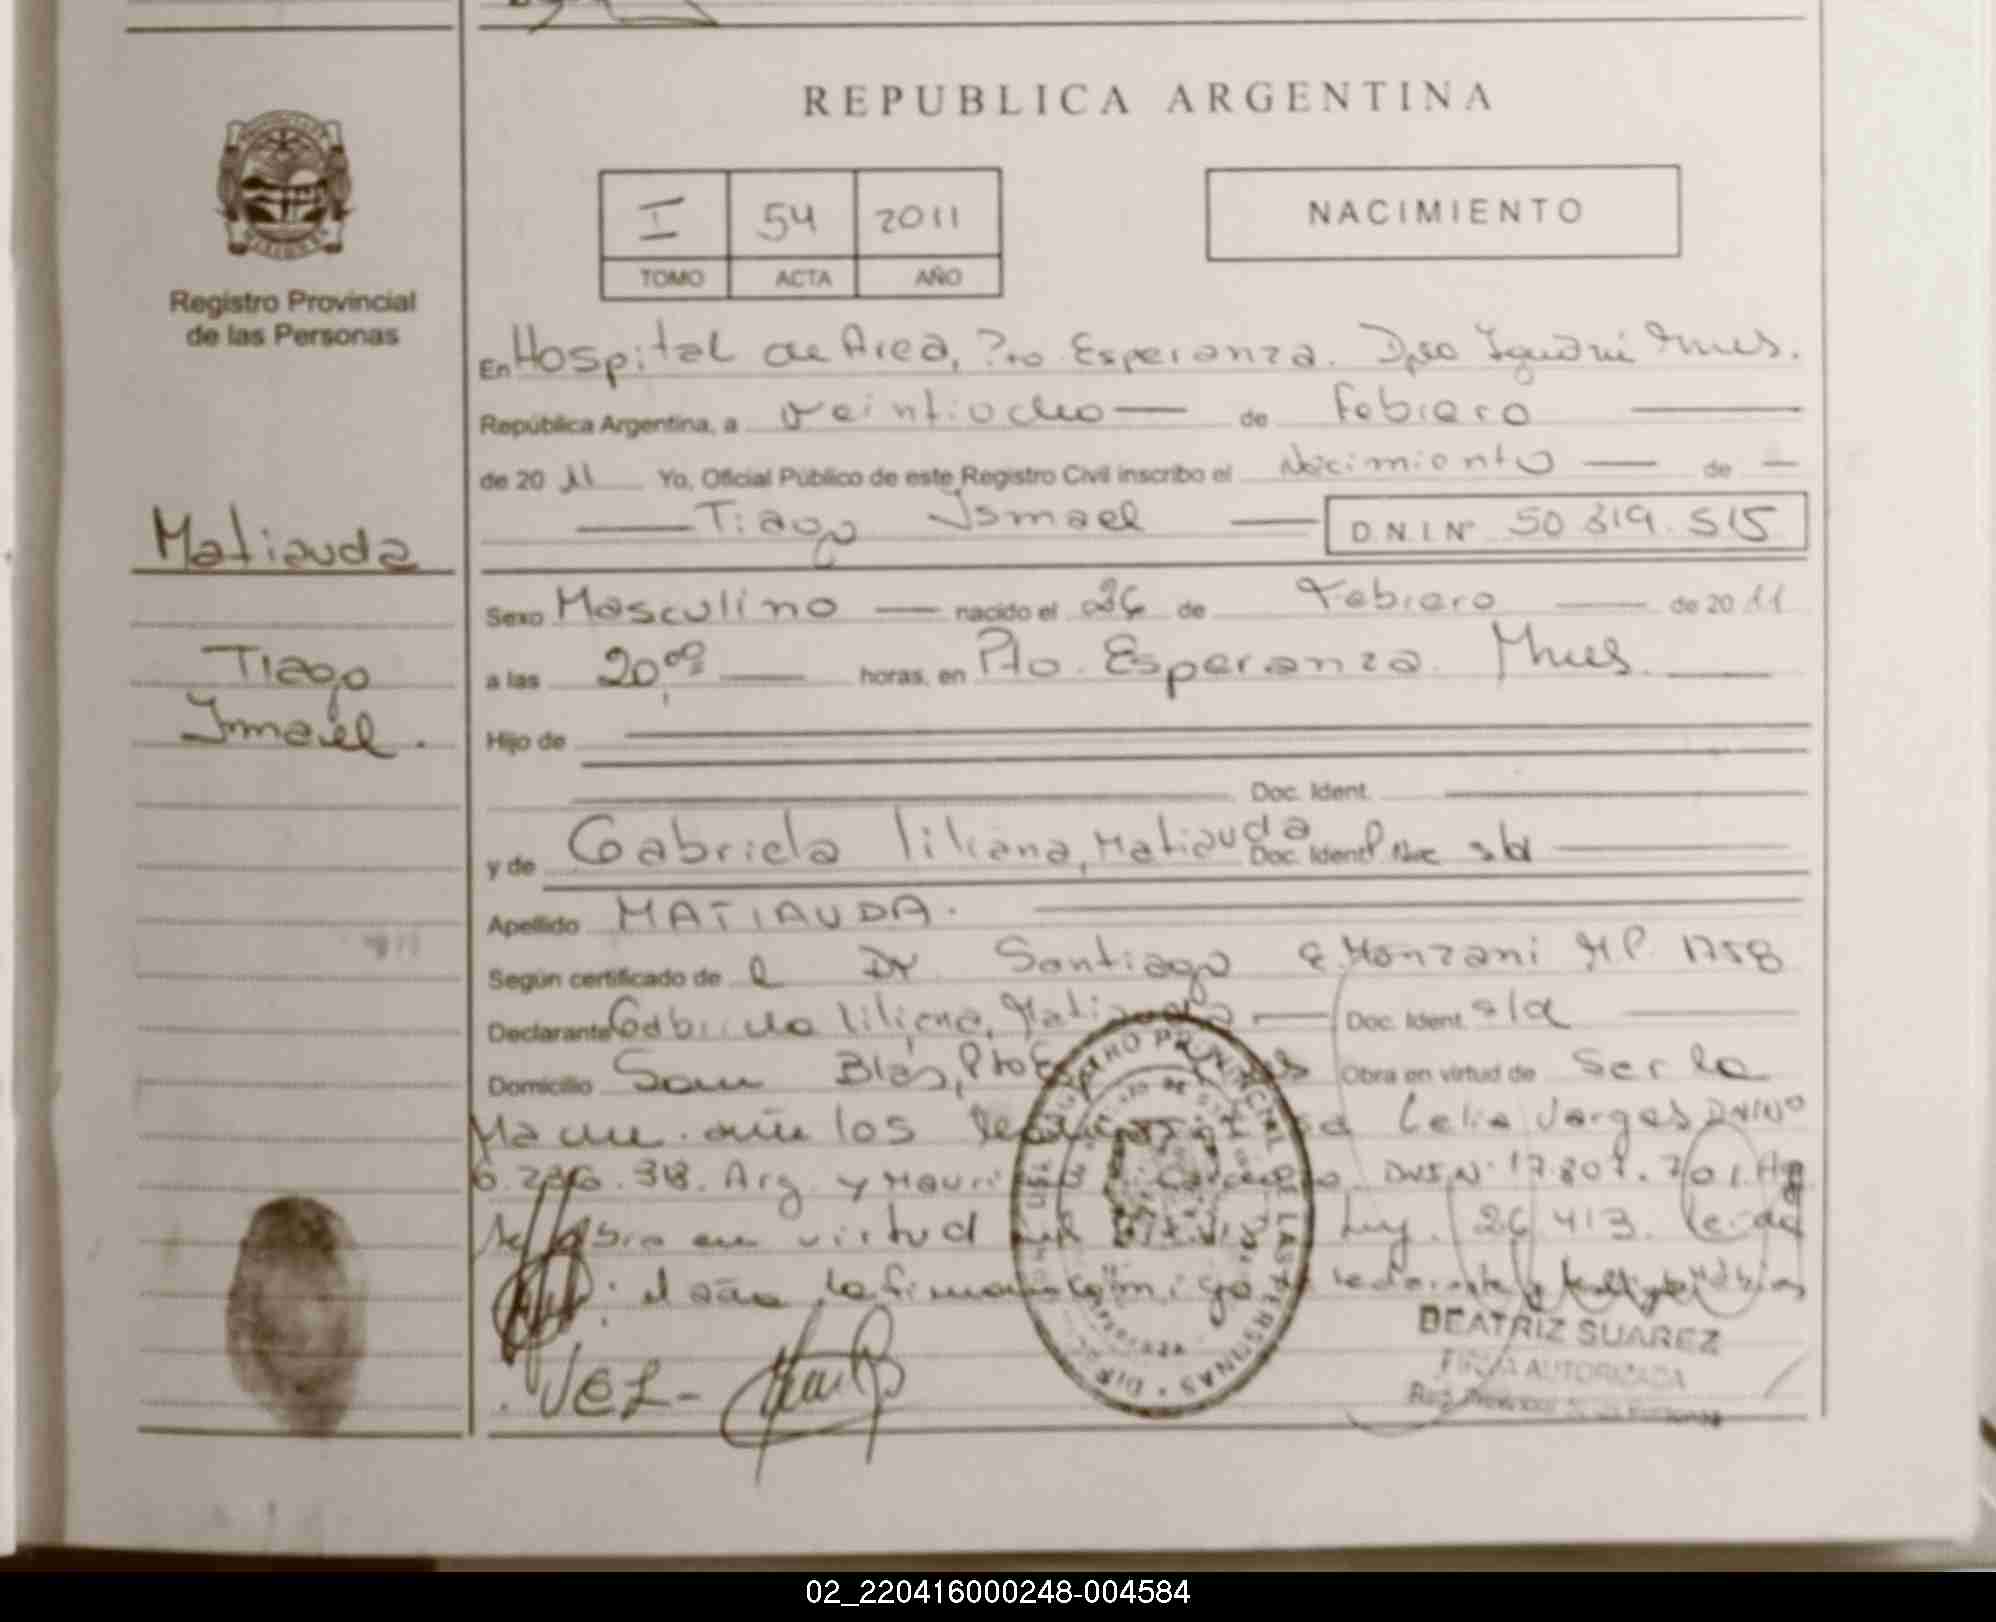 REPUBLICA ARGENTINA
I 54 2011
TOMO ACTA AÑO
NACIMIENTO
Registro Provincial
de las Personas
En Hospital de Area, Pto Esperanza. Dpto Iguazú Mnes.
República Argentina, a veintiocho de Febrero
de 2011 Yo, Oficial Público de este Registro Civil inscribo el Nacimiento de
Tiago Ismael D.N.I Nº 50 319.515
Matiauda
Tiago
Ismael.
Sexo Masculino nacido el 26 de Febrero de 2011
a las 20,00 horas, en Pto. Esperanza. Mnes.
Hijo de
Doc. Ident.
y de Gabriela Liliana, Matiauda Doc. Ident
Apellido MATIAUDA.
Según certificado de el Dr Santiago E. Monzani M P. 1758
Declarante Gabriela Liliana, Matiauda Doc. Ident. s/d
Domicilio San Blas, Pto E Obra en virtud de Ser la
Madre. ante los Celia Vargas DNINº
38. Arg. y Mauri DNI Nº 17.807.701. Arg
Se labra en virtud Ley. 26 413. Leida
el acta, la firman conmigo
BEATRIZ SUAREZ
FIRMA AUTORIZADA
Reg. Provincial de las Personas
REGISTRO PROVINCIAL DE LAS PERSONAS
02_220416000248-004584